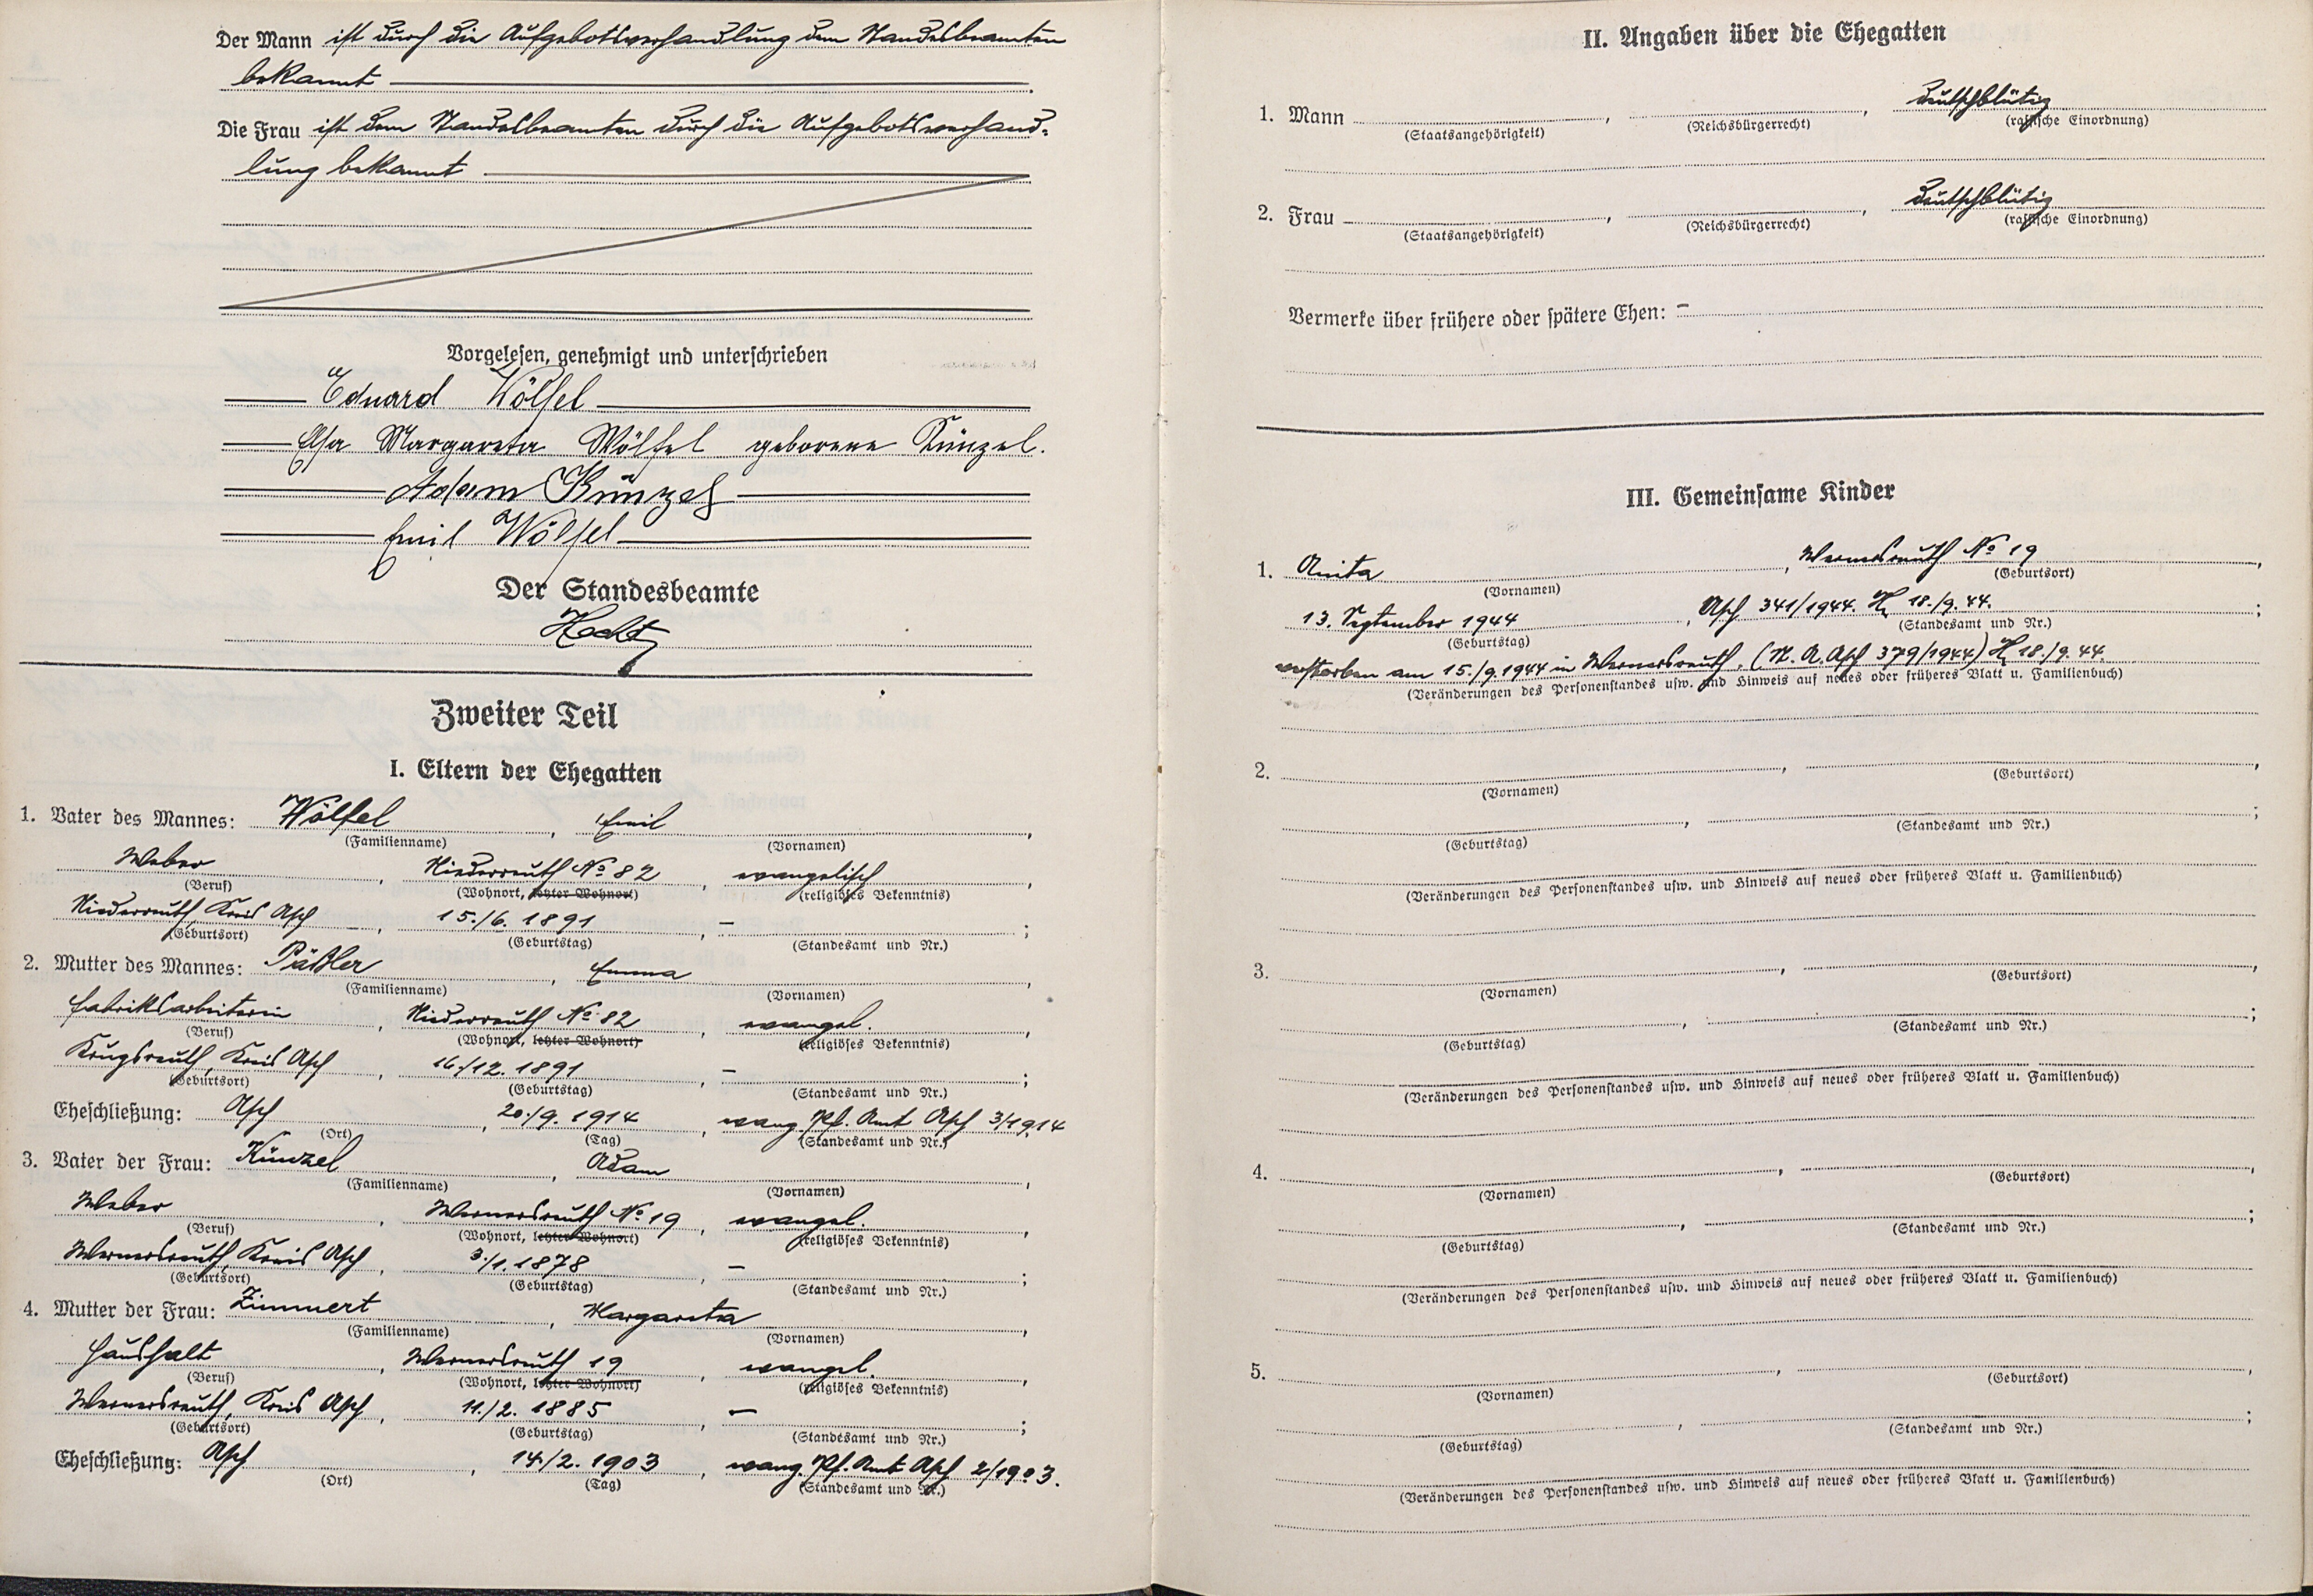 Der Mann ist durch die Aufgebotsverhandlung dem Standesbeamten
bekannt
Die Frau ist dem Standesbeamten durch die Aufgebotsverhand-
lung bekannt
Vorgelesen, genehmigt und unterschrieben
Eduard Wölfel
Elsa Margareta Wölfel geborene Künzel.
Adam Künzel
Emil Wölfel
Der Standesbeamte
Zweiter Teil
I. Eltern der Ehegatten
1. Vater des Mannes: Wölfel, Emil,
(Familienname) (Vornamen)
Weber, Niederreuth No 82, evangelisch,
(Beruf) (Wohnort, letzter Wohnort) (religiöses Bekenntnis)
Niederreuth, Kreis Asch, 15./6. 1891, –;
(Geburtsort) (Geburtstag) (Standesamt und Nr.)
2. Mutter des Mannes: Päßler, Emma,
(Familienname) (Vornamen)
Fabriksarbeiterin, Niederreuth No 82, evangel.,
(Beruf) (Wohnort, letzter Wohnort) (religiöses Bekenntnis)
Krugsreuth, Kreis Asch, 16./12. 1891, –;
(Geburtsort) (Geburtstag) (Standesamt und Nr.)
Eheschließung: Asch, 20./9. 1914, evang. Pf. Amt Asch 3/1914
(Ort) (Tag) (Standesamt und Nr.)
3. Vater der Frau: Künzel, Adam,
(Familienname) (Vornamen)
Weber, Wernersreuth No 19, evangel.,
(Beruf) (Wohnort, letzter Wohnort) (religiöses Bekenntnis)
Wernersreuth, Kreis Asch, 3./1. 1878, –;
(Geburtsort) (Geburtstag) (Standesamt und Nr.)
4. Mutter der Frau: Zimmert, Margareta,
(Familienname) (Vornamen)
Haushalt, Wernersreuth 19, evangel.,
(Beruf) (Wohnort, letzter Wohnort) (religiöses Bekenntnis)
Wernersreuth, Kreis Asch, 11./2. 1885, –;
(Geburtsort) (Geburtstag) (Standesamt und Nr.)
Eheschließung: Asch, 14./2. 1903, evang. Pf. Amt Asch 2/1903.
(Ort) (Tag) (Standesamt und Nr.)
II. Angaben über die Ehegatten
1. Mann , , deutschblütig
(Staatsangehörigkeit) (Reichsbürgerrecht) (rassische Einordnung)
2. Frau , , deutschblütig
(Staatsangehörigkeit) (Reichsbürgerrecht) (rassische Einordnung)
Vermerke über frühere oder spätere Ehen: –
III. Gemeinsame Kinder
1. Anita, Wernersreuth No 19,
(Vornamen) (Geburtsort)
13. September 1944, Asch 341/1944. 18./9. 44.;
(Geburtstag) (Standesamt und Nr.)
verstorben am 15./9.1944 in Wernersreuth. (St. A. Asch 379/1944) 18./9. 44.
(Veränderungen des Personenstandes usw. und Hinweis auf neues oder früheres Blatt u. Familienbuch)
2. , ,
(Vornamen) (Geburtsort)
, ;
(Geburtstag) (Standesamt und Nr.)
(Veränderungen des Personenstandes usw. und Hinweis auf neues oder früheres Blatt u. Familienbuch)
3. , ,
(Vornamen) (Geburtsort)
, ;
(Geburtstag) (Standesamt und Nr.)
(Veränderungen des Personenstandes usw. und Hinweis auf neues oder früheres Blatt u. Familienbuch)
4. , ,
(Vornamen) (Geburtsort)
, ;
(Geburtstag) (Standesamt und Nr.)
(Veränderungen des Personenstandes usw. und Hinweis auf neues oder früheres Blatt u. Familienbuch)
5. , ,
(Vornamen) (Geburtsort)
, ;
(Geburtstag) (Standesamt und Nr.)
(Veränderungen des Personenstandes usw. und Hinweis auf neues oder früheres Blatt u. Familienbuch)